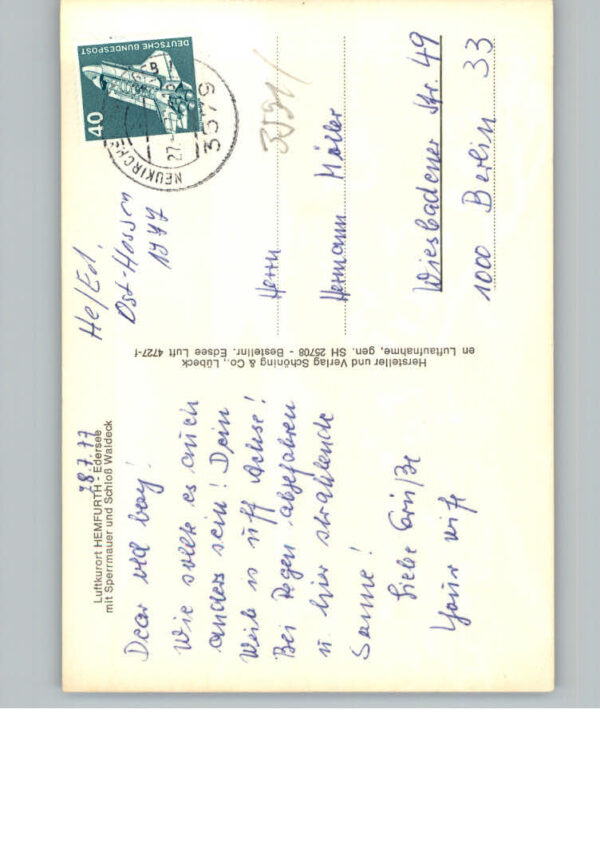 Luftkurort HEMFURTH - Edersee
mit Sperrmauer und Schloß Waldeck
28.7.77
Dear old boy!
Wie sollte es auch
anders sein! Dein
Weib is uff Achse!
Bei Regen abgefahren
u. hier strahlende
Sonne!
Liebe Grüße
Your wife
Hersteller und Verlag Schöning & Co., Lübeck
en Luftaufnahme, gen. SH 25708 - Bestellnr. Edsee Luft 4727-f
He/Ed.
Ost-Hessen
1977
DEUTSCHE BUNDESPOST
40
NEUKIRCHEN
27.
3579
Herrn
Hermann Möller
Wiesbadener Str. 49
1000 Berlin 33